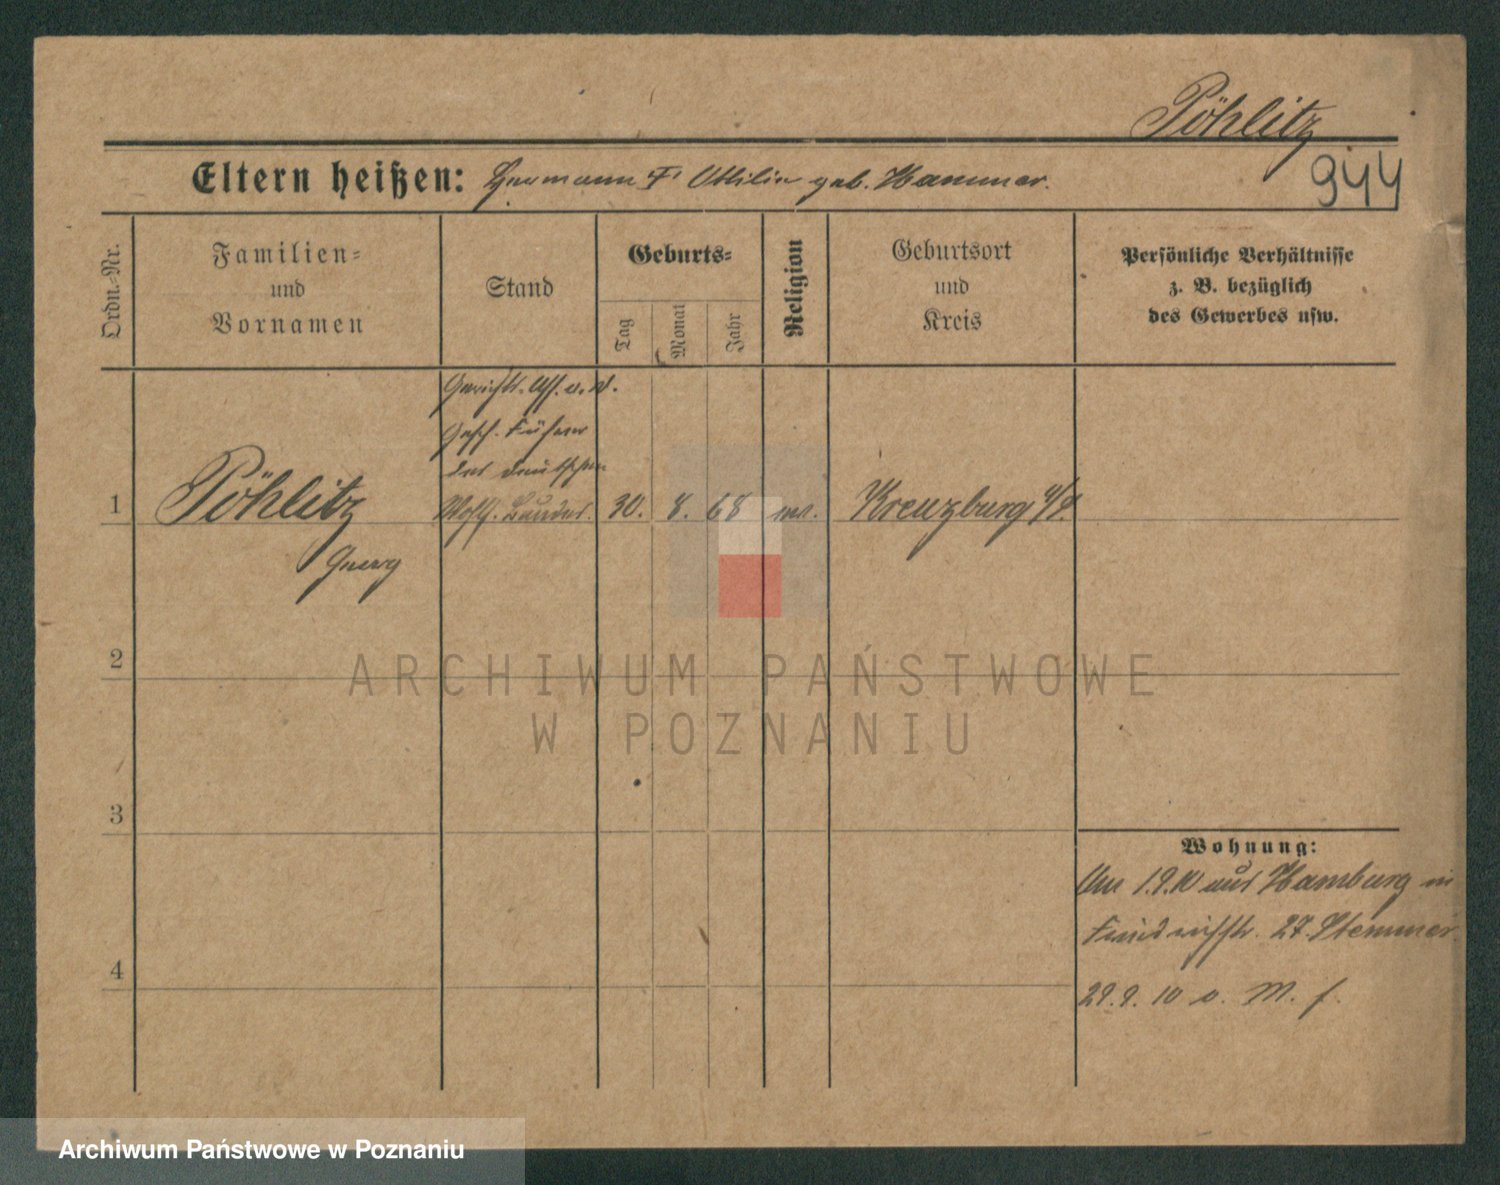 Pöhlitz
944
Eltern heißen: Hermann F. Ottilie geb. Hammer.
Ordn.-Nr.
Familien-
und
Vornamen
Stand
Geburts-
Tag
Monat
Jahr
Religion
Geburtsort
und
Kreis
Persönliche Verhältnisse
z. B. bezüglich
des Gewerbes usw.
Gerichts. Ass. a. D.
Gesch. Führer
des deutschen
1 Pöhlitz 30. 8. 68 Kreuzburg
Georg
2
3
4
Wohnung:
Am 1.9.10 aus Hamburg in
Friedrichstr. 27. Stemmer
29.9.10 M. f.
ARCHIWUM PAŃSTWOWE
W POZNANIU
Archiwum Państwowe w Poznaniu